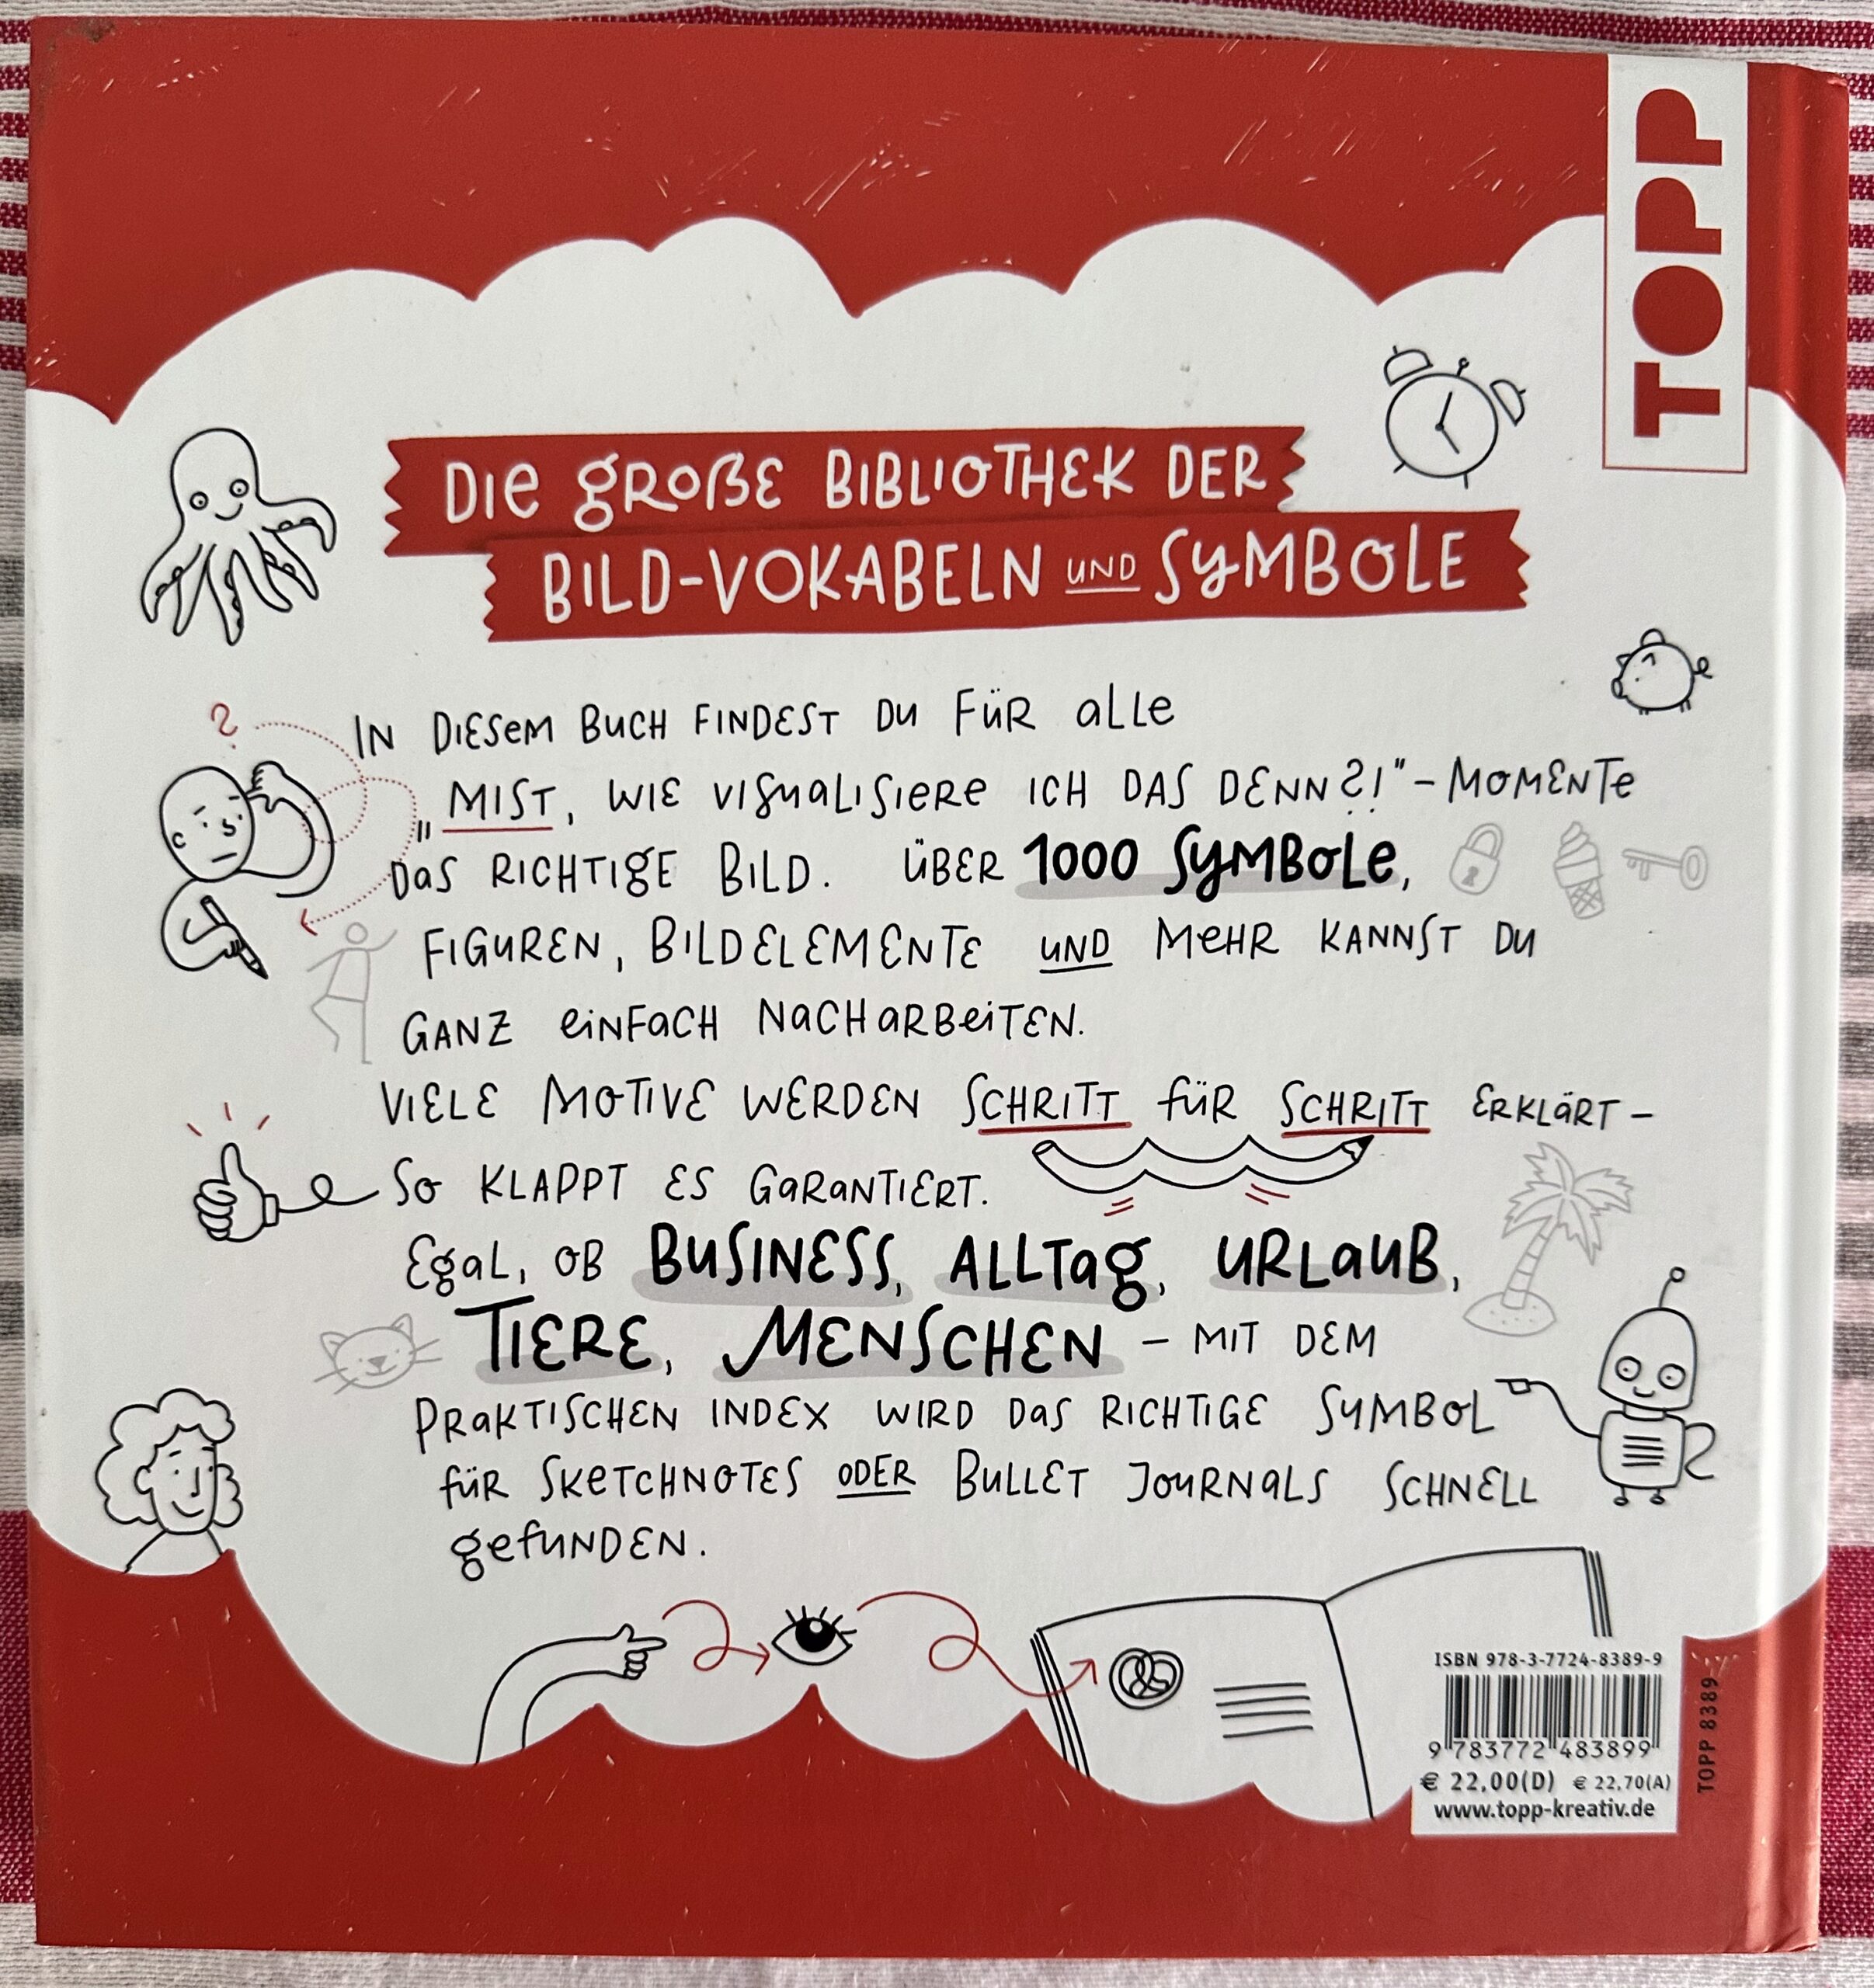 TOPP
DIE GROßE BIBLIOTHEK DER
BILD-VOKABELN UND SYMBOLE
?
IN DIESEM BUCH FINDEST DU FÜR ALLE
„MIST, WIE VISUALISIERE ICH DAS DENN?!"-MOMENTE
DAS RICHTIGE BILD. ÜBER 1000 SYMBOLE,
FIGUREN, BILDELEMENTE UND MEHR KANNST DU
GANZ EINFACH NACHARBEITEN.
VIELE MOTIVE WERDEN SCHRITT FÜR SCHRITT ERKLÄRT –
SO KLAPPT ES GARANTIERT.
EGAL, OB BUSINESS, ALLTAG, URLAUB,
TIERE, MENSCHEN – MIT DEM
PRAKTISCHEN INDEX WIRD DAS RICHTIGE SYMBOL
FÜR SKETCHNOTES ODER BULLET JOURNALS SCHNELL
GEFUNDEN.
ISBN 978-3-7724-8389-9
9 783772 483899
€ 22,00(D) € 22,70(A)
www.topp-kreativ.de
TOPP 8389